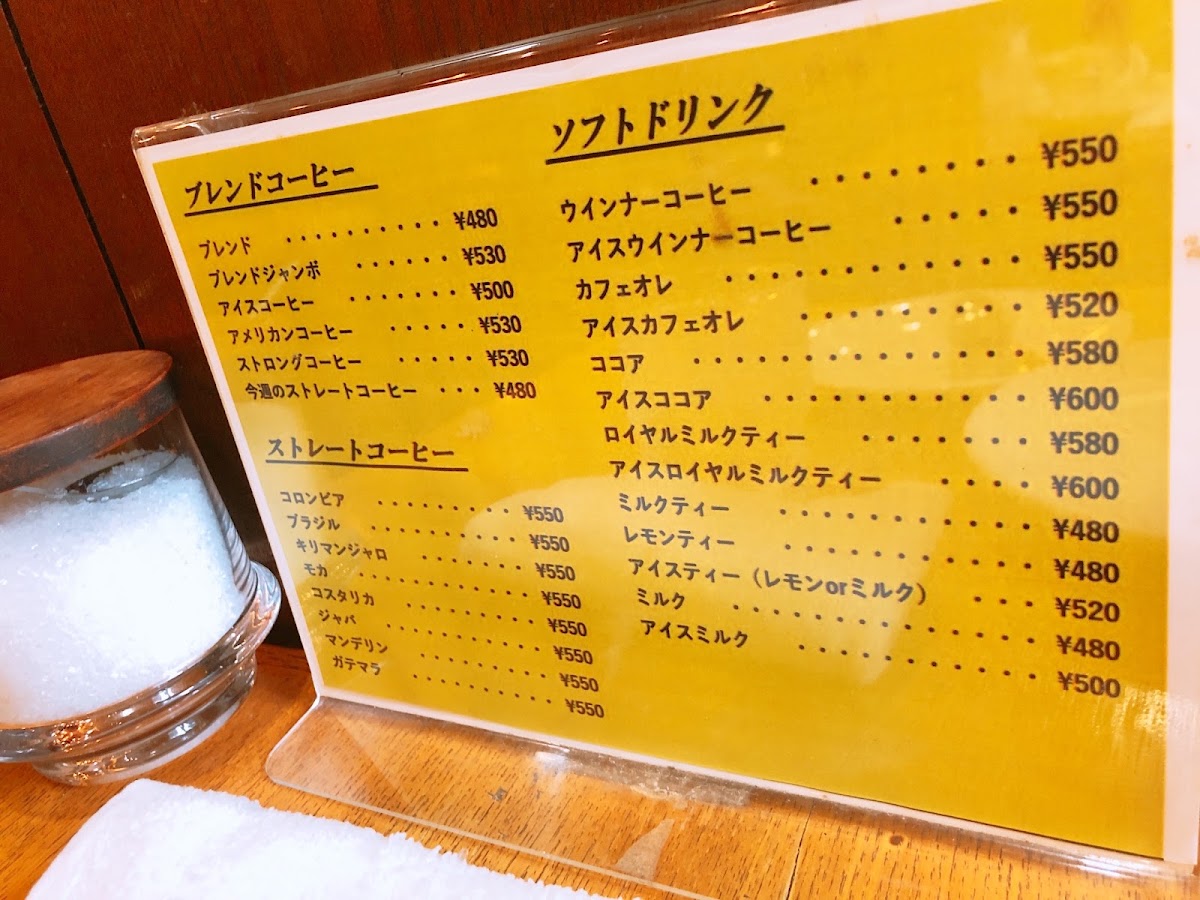 ブレンドコーヒー
ブレンド ・・・・・・・・・・ ¥480
ブレンドジャンボ ・・・・・・ ¥530
アイスコーヒー ・・・・・・・ ¥500
アメリカンコーヒー ・・・・・ ¥530
ストロングコーヒー ・・・・・ ¥530
今週のストレートコーヒー ・・・ ¥480
ストレートコーヒー
コロンビア ・・・・・・・・・ ¥550
ブラジル ・・・・・・・・・・ ¥550
キリマンジャロ ・・・・・・・ ¥550
モカ ・・・・・・・・・・・・ ¥550
コスタリカ ・・・・・・・・・ ¥550
ジャバ ・・・・・・・・・・・ ¥550
マンデリン ・・・・・・・・・ ¥550
ガテマラ ・・・・・・・・・・ ¥550
ソフトドリンク
ウインナーコーヒー ・・・・・・・・・ ¥550
アイスウインナーコーヒー ・・・・・ ¥550
カフェオレ ・・・・・・・・・・・・・ ¥550
アイスカフェオレ ・・・・・・・・・・ ¥520
ココア ・・・・・・・・・・・・・・ ¥580
アイスココア ・・・・・・・・・・・ ¥600
ロイヤルミルクティー ・・・・・・・ ¥580
アイスロイヤルミルクティー ・・・・ ¥600
ミルクティー ・・・・・・・・・・・ ¥480
レモンティー ・・・・・・・・・・・ ¥480
アイスティー（レモンorミルク） ・・・ ¥520
ミルク ・・・・・・・・・・・・・ ¥480
アイスミルク ・・・・・・・・・・・ ¥500